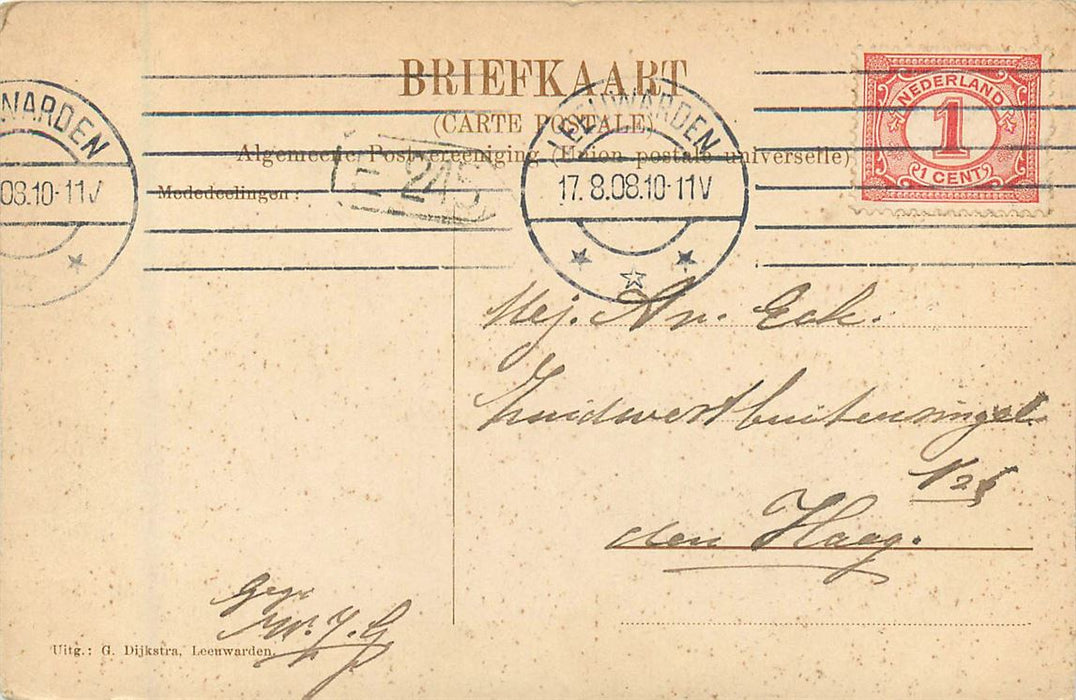 BRIEFKAART
(CARTE POSTALE)
Algemeene Postvereeniging (Union postale universelle)
Mededeelingen:
NEDERLAND
1
1 CENT
WARDEN
08.10-11V
245
LEEUWARDEN
17.8.08.10-11V
Mej. An. Eck.
Zuidwestbuitensingel
den Haag.
Uitg.: G. Dijkstra, Leeuwarden.